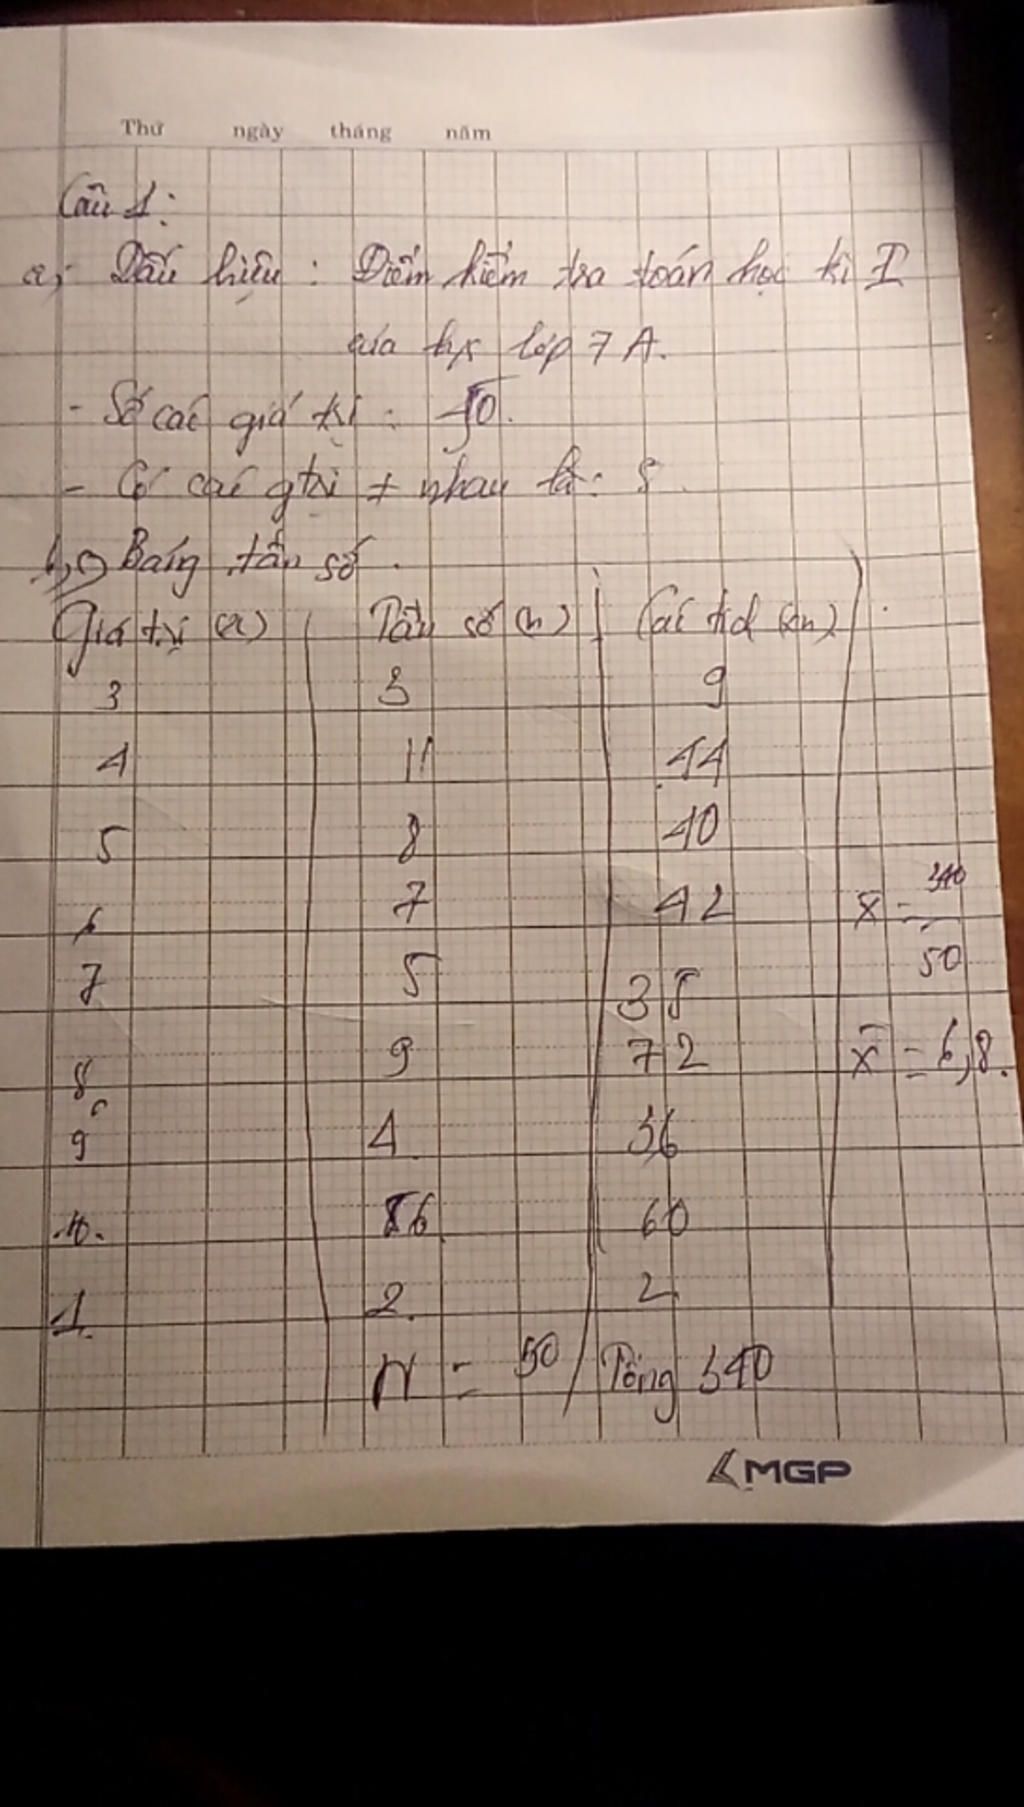 Thứ ngày tháng năm
Câu 1:
a, - Dấu hiệu : Điểm kiểm tra toán học kì I
của hs lớp 7A.
- Số các giá trị : 50.
- Có các gtrị ≠ nhau là: 8.
b, c) Bảng tần số.
Giá trị (x) Tần số (n) Các tích (xn)
3 3 9
4 11 44
5 8 40
6 7 42 x̄ = 340/50
7 5 35
8 9 72 x̄ = 6,8.
9 4. 36
10. 6 60
1. 2. 2
N = 50 Tổng 340
MGP